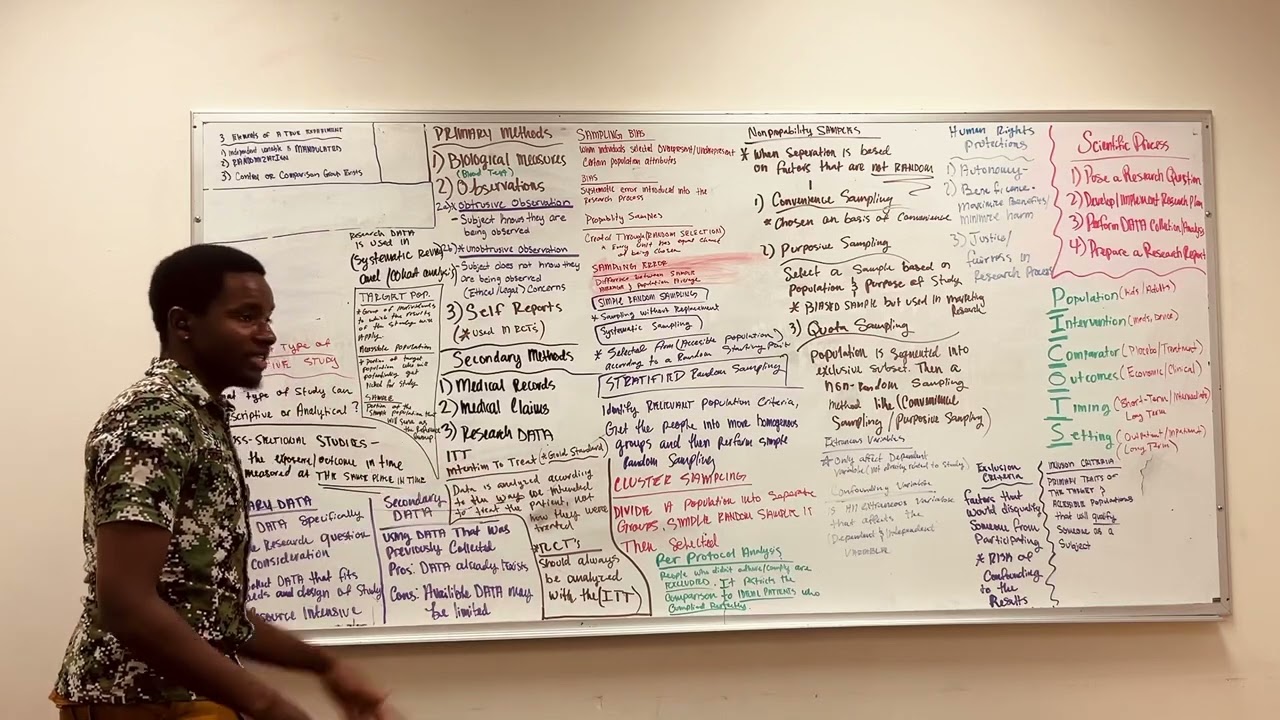 3 Elements of a TRUE EXPERIMENT
1) Independent variable is MANIPULATED
2) RANDOMIZATION
3) Control or Comparison Group Exists
Research DATA
is used in
(Systematic Review
and (Cohort analysis)
TARGET POP.
the results
of the study will
Apply.
Accessible population
Portion of target
population who are
potentially get
picked for study.
SAMPLE
portion of the
population that
will serve as
Type of
STUDY
type of Study can
scriptive or Analytical?
SS-SECTIONAL STUDIES-
the exposure/outcome in time
measured at THE SAME PLACE IN TIME
ARY DATA
DATA Specifically
Research question
Consideration
DATA that fits
eds and design of Study
source Intensive
Secondary
DATA
Using DATA That was
Previously Collected
Pros: DATA already Exists
Cons: Available DATA may
be limited
PRIMARY Methods
1) Biological Measures
(Blood Test)
2) Observations
* Obtrusive Observation
- Subject knows they are
being observed
* Unobtrusive Observation
Subject does not know they
are being observed
(Ethical/Legal) Concerns
3) Self Reports
(* used in RCT's)
Secondary Methods
1) Medical Records
2) Medical Claims
3) Research DATA
ITT
Intention To Treat (*Gold Standard)
Data is analyzed according
to the way we intended
to treat the patient, not
how they were
treated
* RCT's
Should always
be analyzed
with the (ITT)
SAMPLING BIAS
when individuals selected overrepresent/underrepresent
Certain population attributes
BIAS
Systematic error introduced into the
research process
Probability Samples
Created Through (RANDOM SELECTION)
* Every unit has equal chance
of being chosen
SAMPLING ERROR
Difference between SAMPLE
AVERAGE & population Average
SIMPLE RANDOM SAMPLING
* Sampling without Replacement
Systematic Sampling
* Selected from (Accesible population)
according to a Random Starting Point
STRATIFIED Random Sampling
Identify RELEVANT Population Criteria,
Get the people into more homogenous
groups and then perform simple
Random Sampling
CLUSTER SAMPLING
DIVIDE A POPULATION INTO SEPARATE
Groups, SIMPLE RANDOM SAMPLE IS
Then Selected
Per Protocol Analysis
People who didn't adhere/comply are
EXCLUDED. It restricts the
comparison to IDEAL PATIENTS who
Complied Perfectly.
Nonprobability SAMPLES
* When Seperation is based
on factors that are NOT RANDOM
1) Convenience Sampling
* Chosen on basis of Convenience
2) Purposive Sampling
Select a Sample based on
Population & purpose of Study
* BIASED SAMPLE but used in Marketing
Research
3) Quota Sampling
Population is Segmented into
exclusive Subset. Then a
non-Random Sampling
method like (Convenience
Sampling/Purposive Sampling)
Extraneous Variables
* Only affect Dependent
Variable (not directly related to Study)
Confounding Variable
is AN EXTRANEOUS Variable
that affects the
(Dependent & Independent
VARIABLE
Human Rights
Protections
1) Autonomy-
2) Beneficence-
Maximize Benefits/
Minimize harm
3) Justice/
fairness in
Research Process
Exclusion
Criteria
factors that
would disqualify
Someone from
Participating
* RISK of
Confounding
to the
Results
Scientific Process
1) Pose a Research Question
2) Develop/Implement Research Plan
3) Perform DATA Collection/Analysis
4) Prepare a Research Report
Population (Kids/Adults)
Intervention (meds, Device)
Comparator (Placebo/Treatment)
Outcomes (Economic/Clinical)
Timing (Short-Term/Intermediate
Long Term
Setting (Outpatient/Inpatient
(Long Term)
INCLUSION CRITERIA
PRIMARY TRAITS OF
THE TARGET &
ACCESSIBLE POPULATIONS
that will qualify
Someone as a
Subject